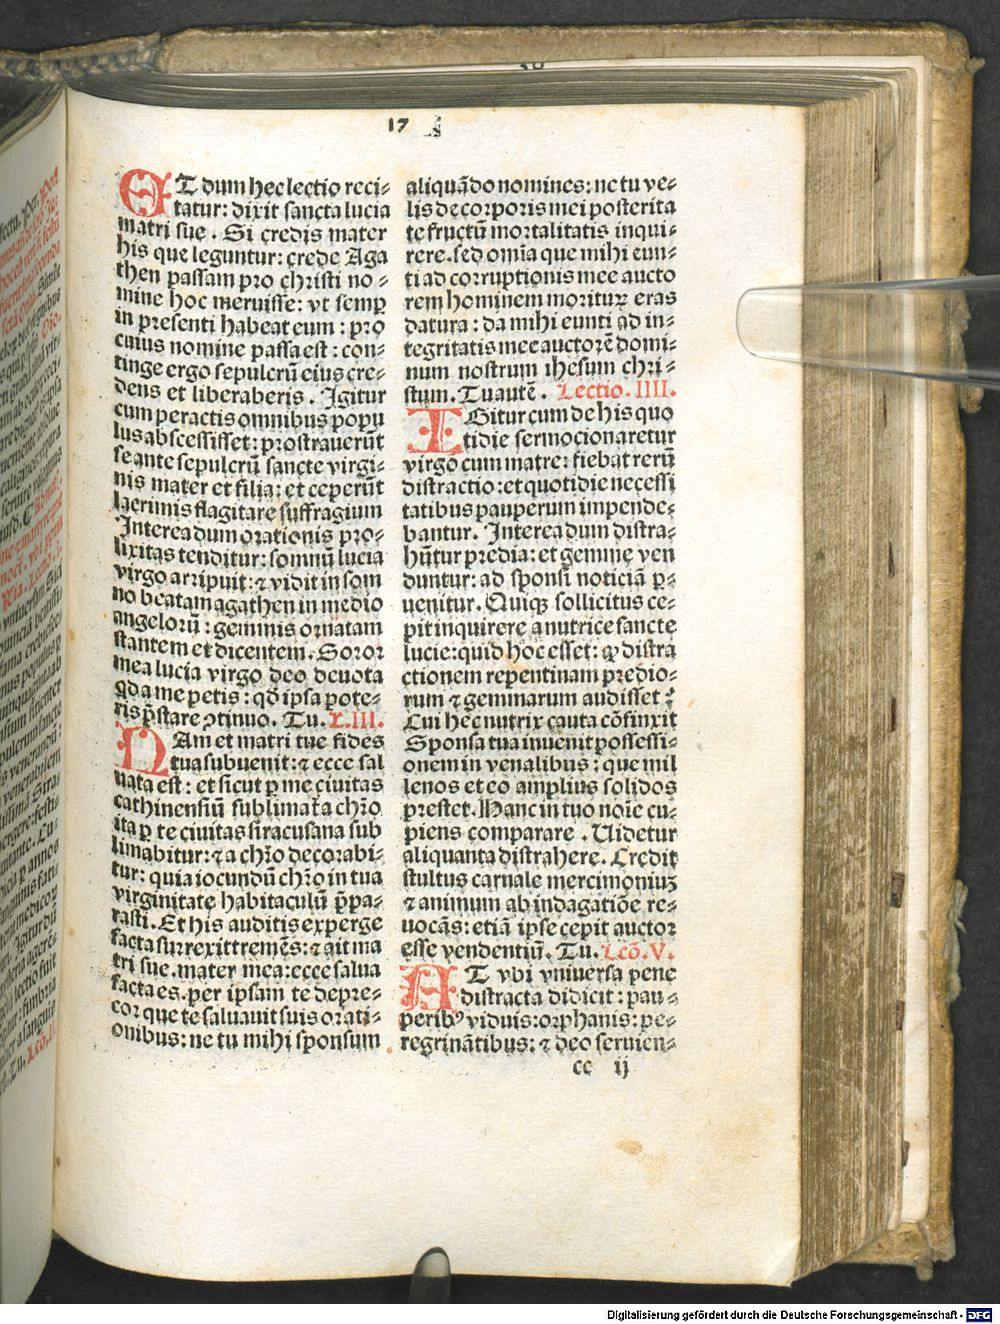 17
ET dum hec lectio reci-
tatur: dixit sancta lucia
matri sue. Si credis mater
his que leguntur: crede Aga
then passam pro christi no-
mine hoc meruisse: vt semꝑ
in presenti habeat eum: pro
cuius nomine passa est: con-
tinge ergo sepulcrū eius cre-
dens et liberaberis. Igitur
cum peractis omnibus popu
lus abscessisset: prostrauerūt
se ante sepulcrū sancte virgi-
nis mater et filia: et ceperūt
lacrimis flagitare suffragium
Interea dum orationis pro-
lixitas tenditur: somnū lucia
virgo arripuit: ⁊ vidit in som
no beatam agathen in medio
angelorū: gemmis ornatam
stantem et dicentem. Soror
mea lucia virgo deo deuota
qd a me petis: qd ipsa pote-
ris p̄stare ꝯtinuo. Tu. L.III.
NAm et matri tue fides
tua subuenit: ⁊ ecce sal
uata est: et sicut ꝑ me ciuitas
cathinensiū sublimata chr̄o
ita ꝑ te ciuitas siracusana sub
limabitur: ⁊ a chr̄o decorabi-
tur: quia iocundū chr̄o in tua
virginitate habitaculū p̄pa-
rasti. Et his auditis experge
facta surrexit tremēs: ⁊ ait ma
tri sue. mater mea: ecce salua
facta es. per ipsam te depre-
cor que te saluauit suis orati-
onibus: ne tu mihi sponsum
aliquādo nomines: ne tu ve-
lis de corporis mei posterita
te fructū mortalitatis inqui-
rere. sed omīa que mihi eun-
ti ad corruptionis mee aucto
rem hominem morituꝝ eras
datura: da mihi eunti ad in-
tegritatis mee auctorē domi-
num nostrum ihesum chri-
stum. Tu autē. Lectio. IIII.
IGitur cum de his quo
tidie sermocionaretur
virgo cum matre: fiebat rerū
distractio: et quotidie necessi
tatibus pauperum impende-
bantur. Interea dum distra-
hūtur predia: et gemme ven
duntur: ad sponsi noticiā ꝑ-
uenitur. Quiqꝫ sollicitus ce-
pit inquirere a nutrice sancte
lucie: quid hoc esset: ꝙ distra
ctionem repentinam predio-
rum ⁊ gemmarum audisset:
Cui hec nutrix cauta cōfinxit
Sponsa tua inuenit possessi-
onem in venalibus: que mil
lenos et eo amplius solidos
prestet. Hanc in tuo noīe cu-
piens comparare. Uidetur
aliquanta distrahere. Credit
stultus carnale mercimoniuꝫ
⁊ animum ab indagatiōe re-
uocās: etiā ipse cepit auctor
esse vendentiū. Tu. Lcō. V.
AT vbi vniuersa pene
distracta didicit: pau-
peribꝰ viduis: orphanis: pe-
regrinātibus: ⁊ deo seruien-
cc ij
Digitalisierung gefördert durch die Deutsche Forschungsgemeinschaft - DFG